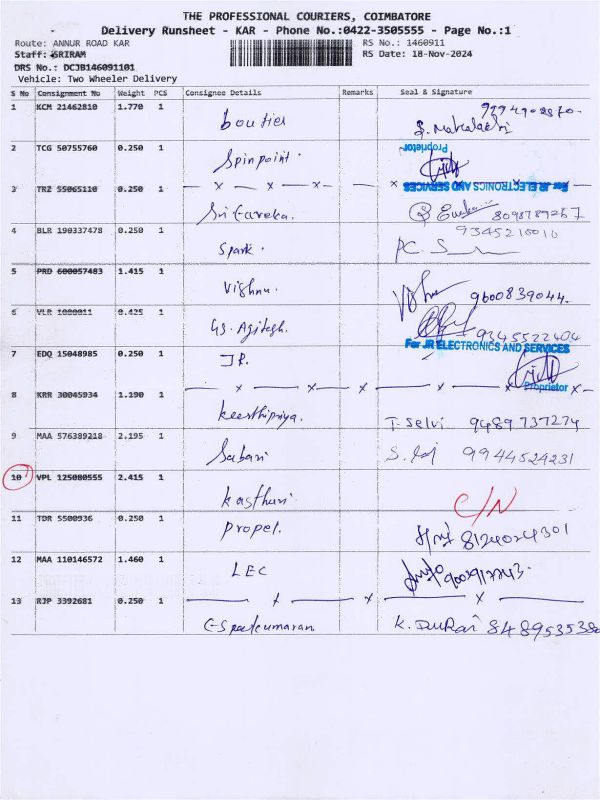 THE PROFESSIONAL COURIERS, COIMBATORE
Delivery Runsheet - KAR - Phone No.:0422-3505555 - Page No.:1
Route: ANNUR ROAD KAR
RS No.: 1460911
Staff: SRIRAM
RS Date: 18-Nov-2024
DRS No.: DCJB146091101
Vehicle: Two Wheeler Delivery
S No Consignment No Weight PCS Consignee Details Remarks Seal & Signature
1 KCM 21462810 1.770 1 boutier
2 TCG 50755760 0.250 1 Spinpoint. Proprietor
For JR ELECTRONICS AND SERVICES
3 TRZ 55065110 0.250 1 Sri Eureka. 8098789267
4 BLR 190337478 0.250 1 Spark. 9345210010
5 PRD 600057403 1.415 1 Vishnu. 9600839044.
6 VLR 1080011 0.425 1 GS. Agitesh. 9345522404
For JR ELECTRONICS AND SERVICES
7 EDQ 15048985 0.250 1 JR. Proprietor
8 KRR 30045934 1.190 1 keerthipriya. T. Selvi 9489737274
9 MAA 576389218 2.195 1 Sabari 9944524231
10 VPL 125080555 2.415 1 kasthuri C/N
11 TDR 5500936 0.250 1 Propel. 8124024301
12 MAA 110146572 1.460 1 LEC
13 RJP 3392681 0.250 1 K. DuRai 848953538